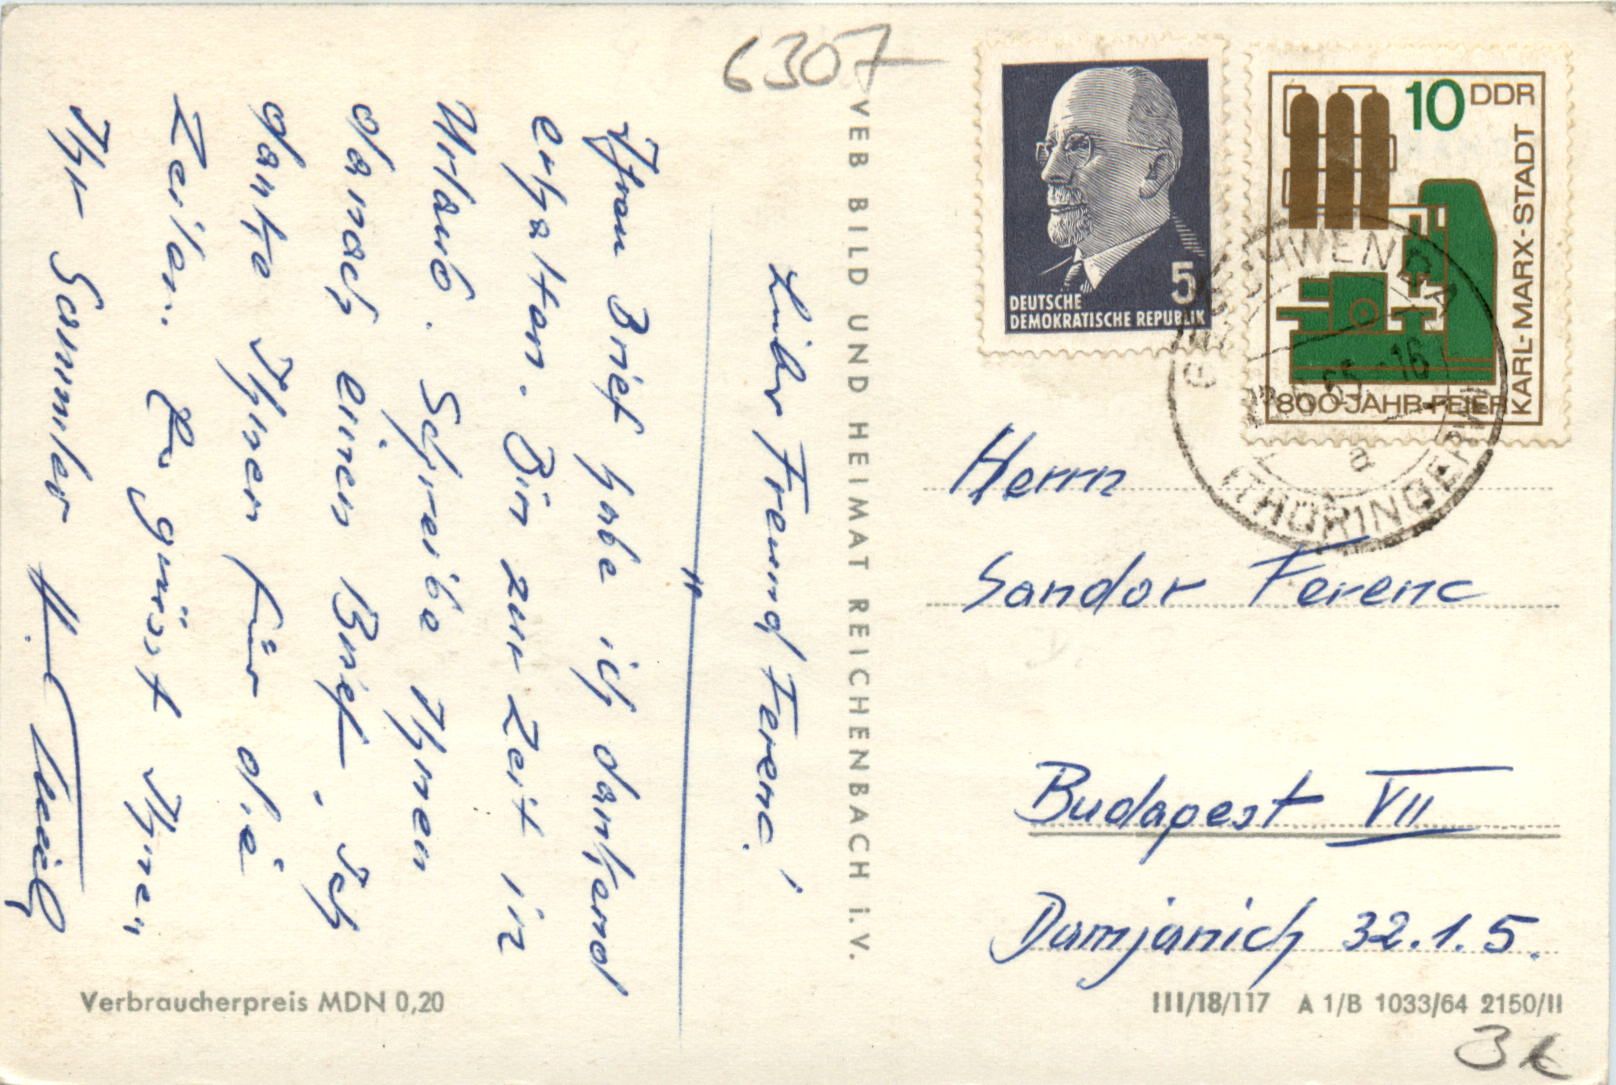 6307
DEUTSCHE
DEMOKRATISCHE REPUBLIK
5
10 DDR
KARL-MARX-STADT
800 JAHR-FEIER
THÜRINGER
a
VEB BILD UND HEIMAT REICHENBACH i.V.
Lieber Freund Ferenc!
Ihren Brief habe ich dankend
erhalten. Bin zur Zeit in
Urlaub. Schreibe Ihnen
danach einen Brief. Ich
danke Ihnen für die
Zeilen. Es grüsst Ihnen
Ihr Sammler H.
Herrn
Sandor Ferenc
Budapest VII
Damjanich 32.1.5.
Verbraucherpreis MDN 0,20
III/18/117 A 1/B 1033/64 2150/II